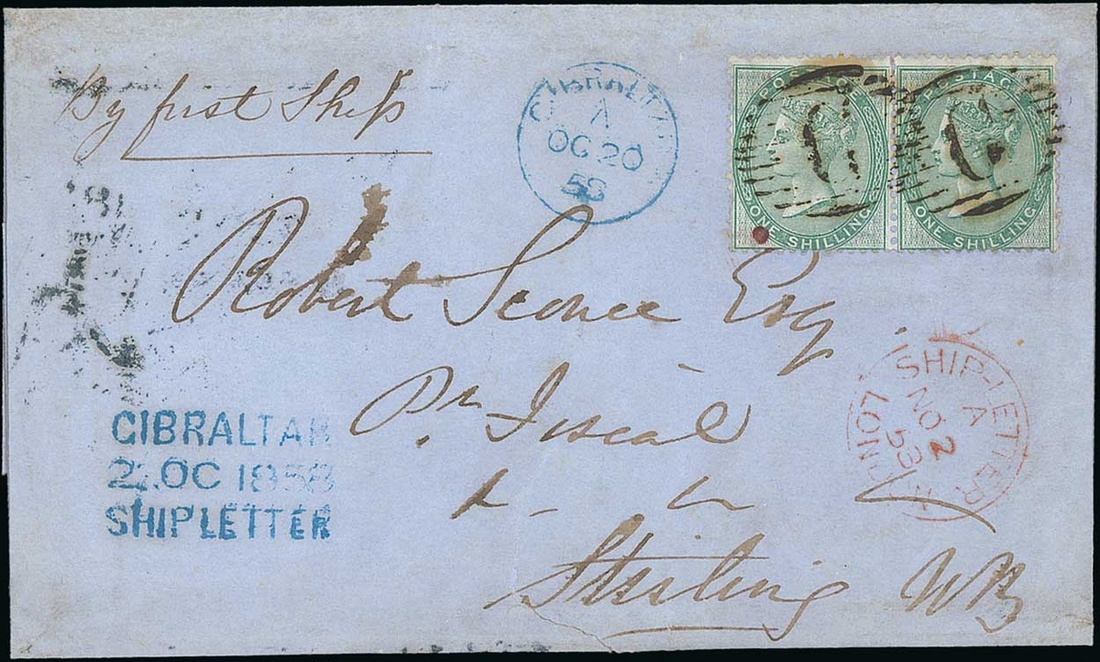 By first Ship
GIBRALTAR
A
OC 20
58
POSTAGE
ONE SHILLING
POSTAGE
ONE SHILLING
G
G
Robert Sconce Esq
Pr Fiscal
Stirling NB
GIBRALTAR
OC 1858
SHIP LETTER
SHIP-LETTER
A
NO 2
58
LONDON